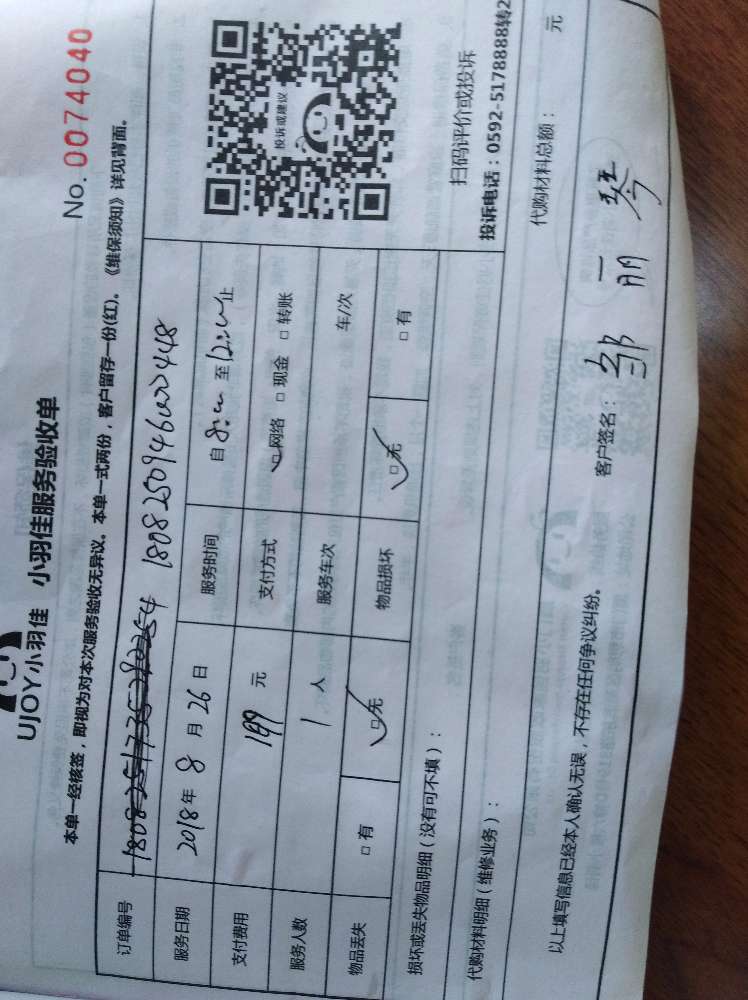 No. 0074040
UJOY小羽佳 小羽佳服务验收单
本单一经核签，即视为对本次服务验收无异议。本单一式两份，客户留存一份(红)。《维保须知》详见背面。
订单编号 180825094600448
服务日期 2018年 8 月 26 日 服务时间 自 8:00 至 12:00 止
支付费用 199 元 支付方式 ☑网络 □现金 □转账
服务人数 1 人 服务车次 车/次
物品丢失 □有 ☑无 物品损坏 ☑无 □有
投诉或建议
扫码评价或投诉
投诉电话：0592-5178888转2
损坏或丢失物品明细（没有可不填）：
代购材料明细（维修业务）： 代购材料总额： 元
以上填写信息已经本人确认无误，不存在任何争议纠纷。 客户签名： 邹丽琴